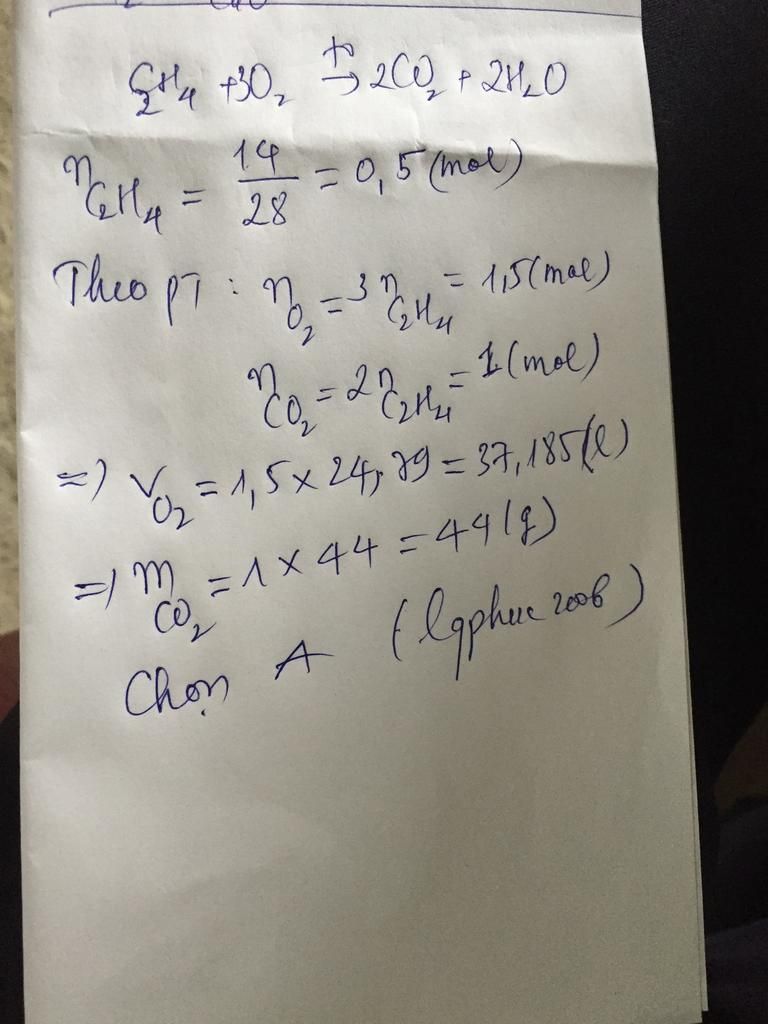 C₂H₄ + 3O₂ →t° 2CO₂ + 2H₂O
nC₂H₄ = 14/28 = 0,5 (mol)
Theo pT : nO₂ = 3nC₂H₄ = 1,5 (mol)
nCO₂ = 2nC₂H₄ = 1 (mol)
=> VO₂ = 1,5 × 24,79 = 37,185 (l)
=> mCO₂ = 1 × 44 = 44 (g)
Chọn A (lqphuc2006)